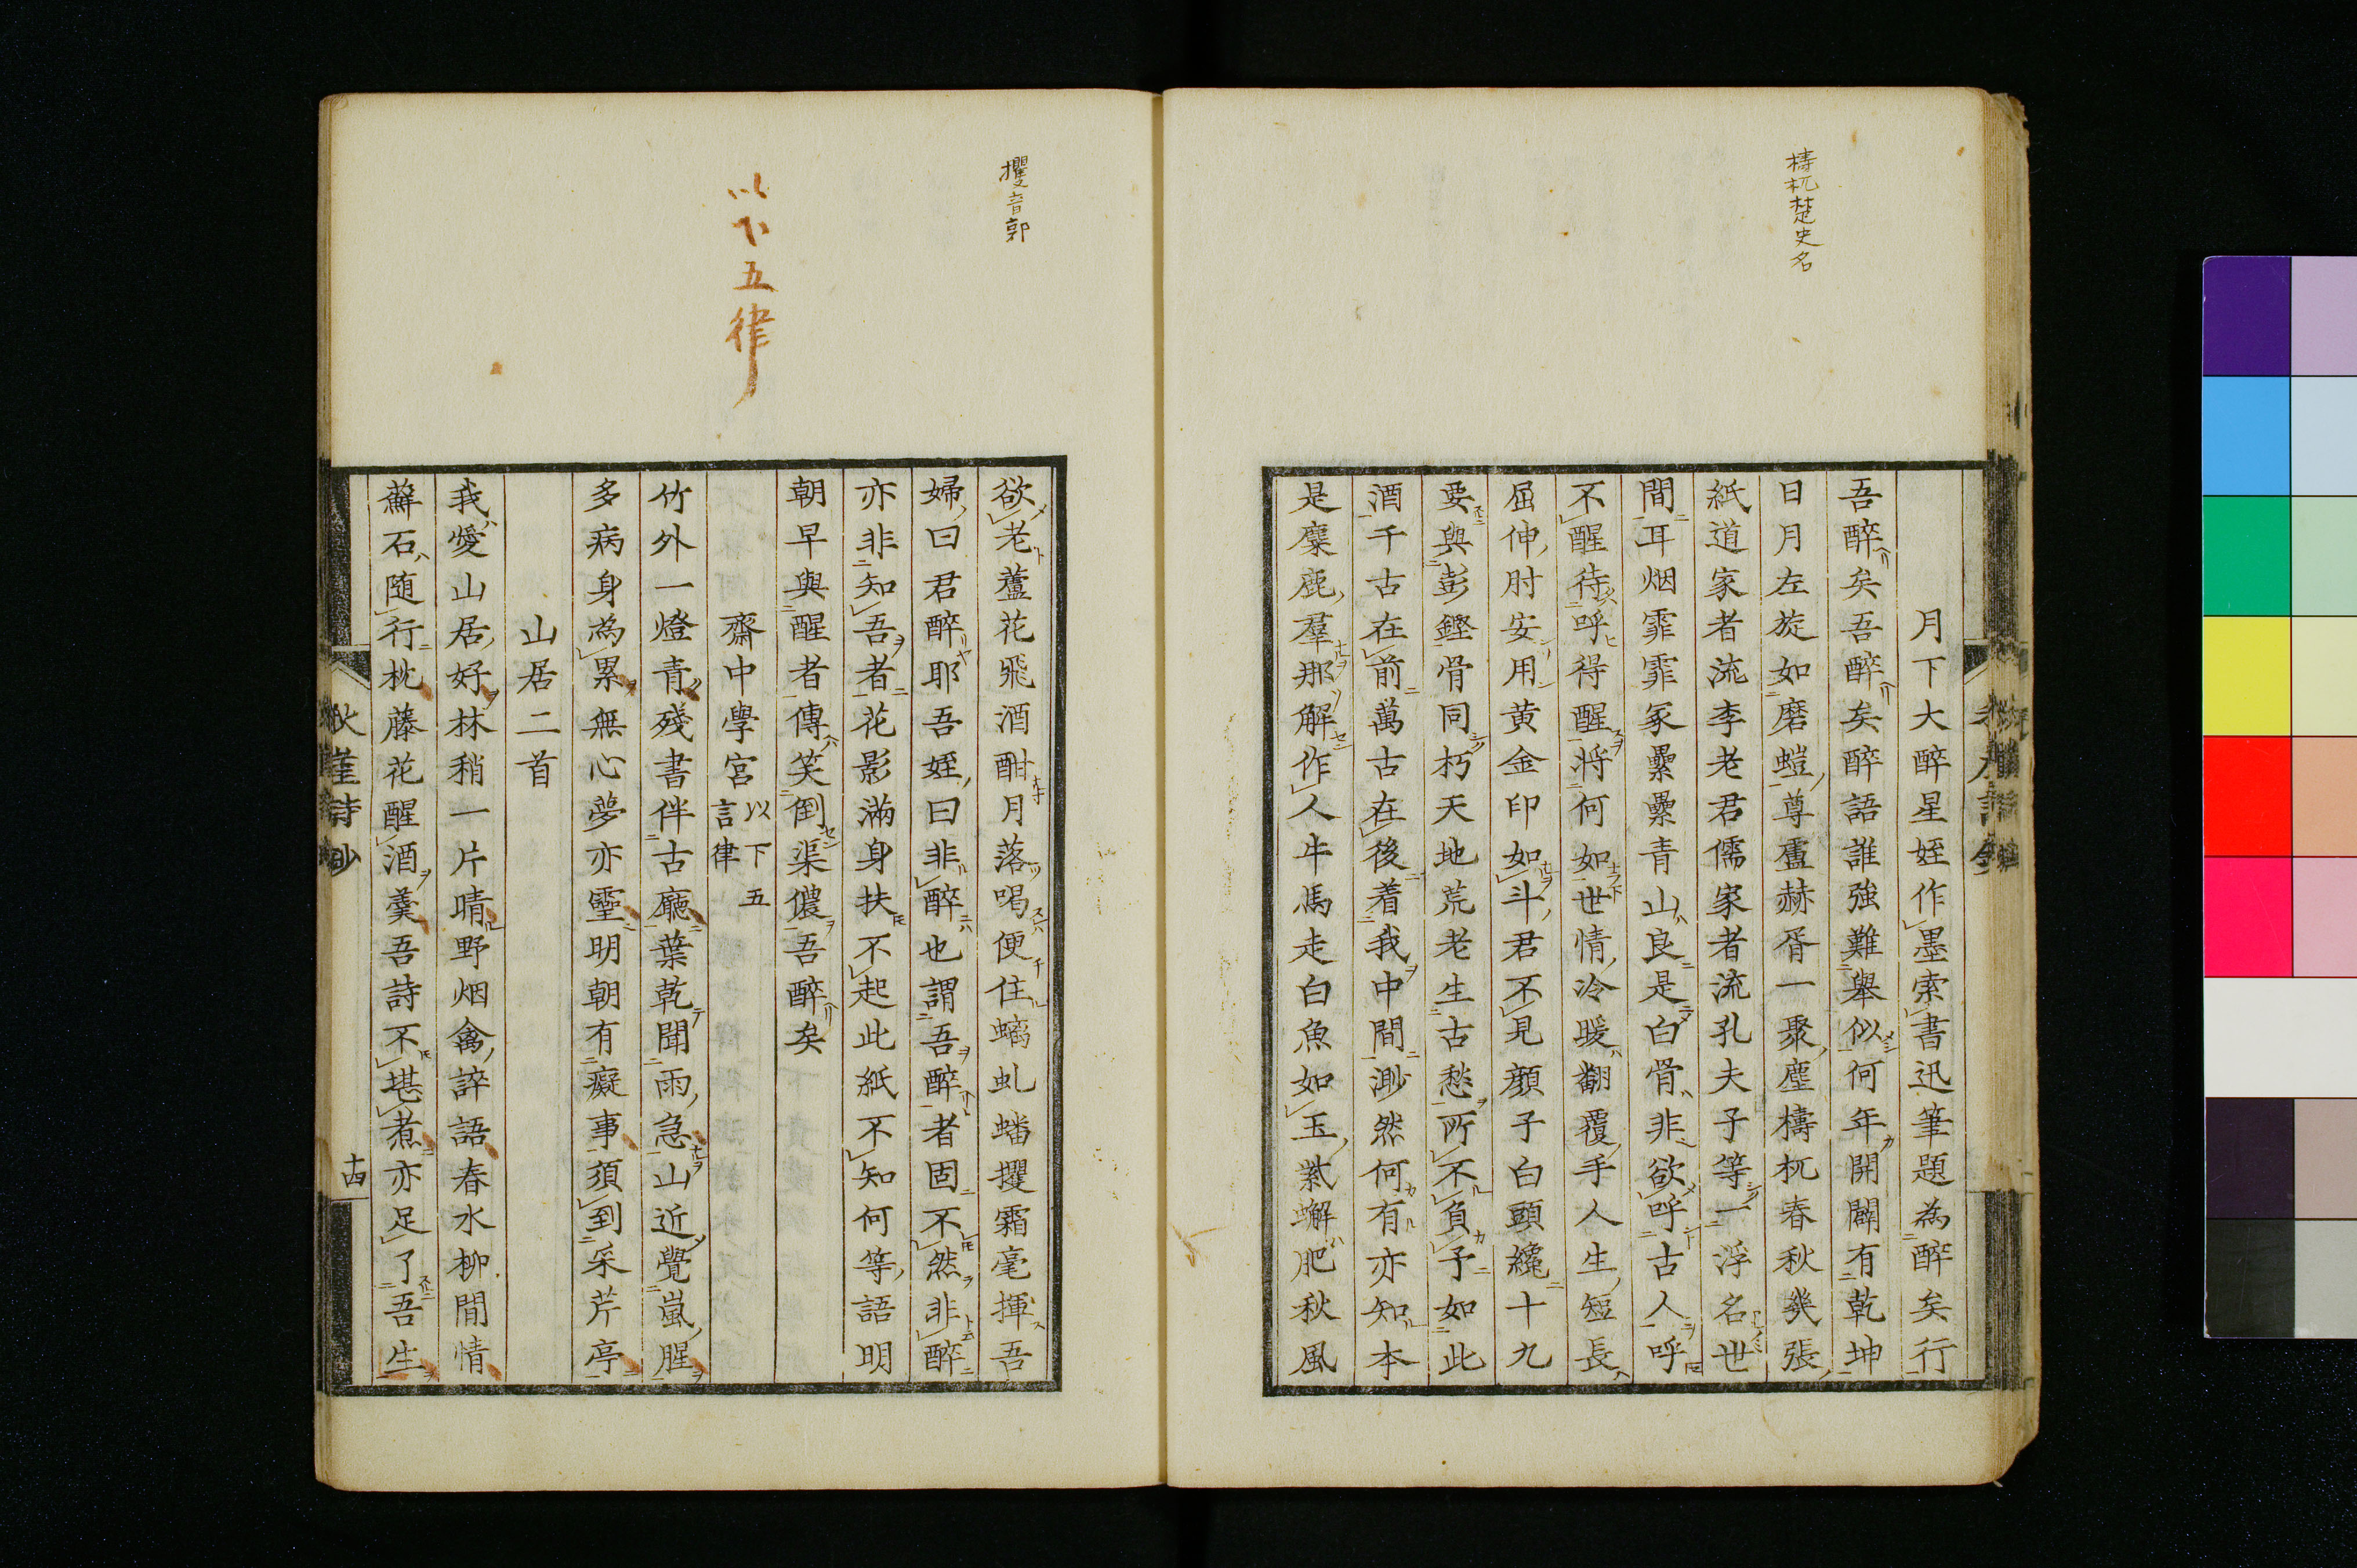 檮杌楚史名
月下大醉星姪作墨索書迅筆題為醉矣行
吾醉矣吾醉矣醉語誰強難舉似何年開闢有乾坤
日月左旋如磨螘尊盧赫胥一聚塵檮杌春秋幾張
紙道家者流李老君儒家者流孔夫子等一浮名世
間耳烟霏霏冢纍纍青山良是白骨非欲呼古人呼
不醒待呼得醒將何如世情冷暖翻覆手人生短長
屈伸肘安用黃金印如斗君不見顏子白頭纔十九
要與彭鏗骨同朽天地荒老生古愁所不負予如此
酒千古在前萬古在後着我中間渺然何有亦知本
是麋鹿羣那解作人牛馬走白魚如玉紫蠏肥秋風
攫音郭
以下五律
欲老蘆花飛酒酣月落喝便住螭虬蟠攫霜毫揮吾
婦曰君醉耶吾姪曰非醉也謂吾醉者固不然非醉
亦非知吾者花影滿身扶不起此紙不知何等語明
朝早與醒者傳笑倒渠儂吾醉矣
齋中學宮以下五言律
竹外一燈青殘書伴古廳葉乾聞雨急山近覺嵐腥
多病身為累無心夢亦靈明朝有癡事須到采芹亭
山居二首
我愛山居好林稍一片晴野烟禽誶語春水柳間情
蘚石随行枕藤花醒酒羹吾詩不堪煮亦足了吾生
秋崖詩鈔
十四